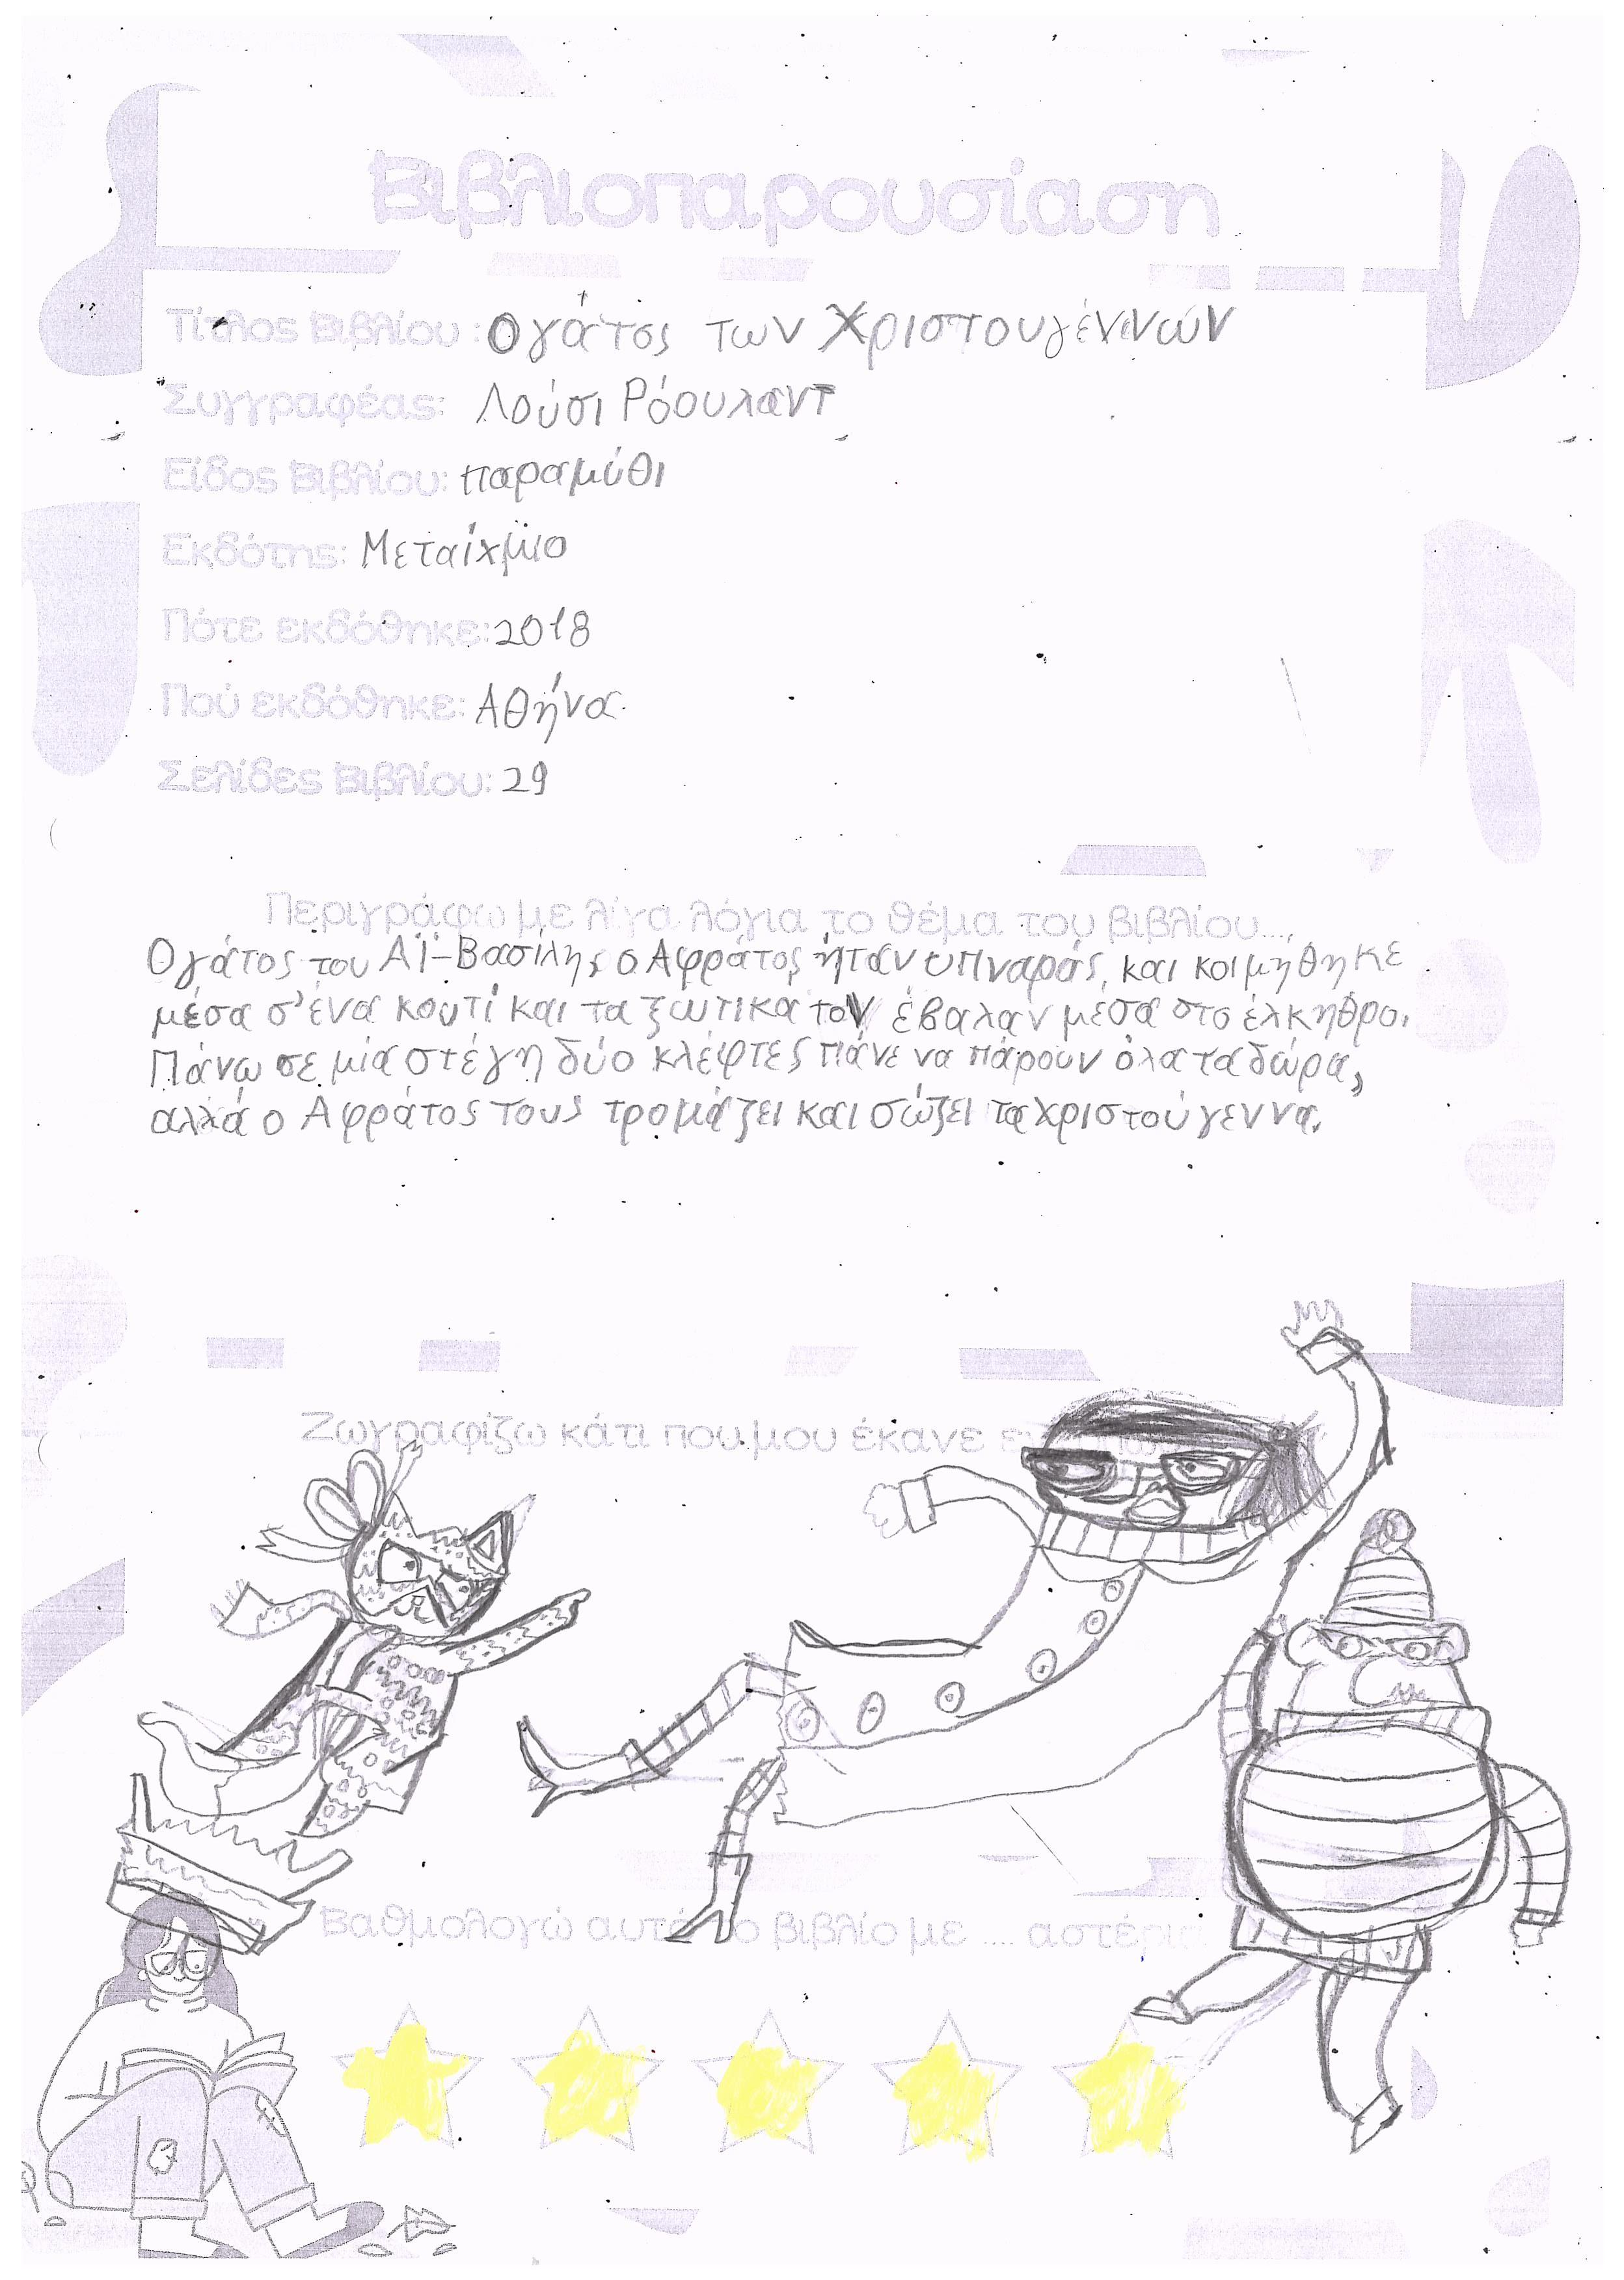 Βιβλιοπαρουσίαση
Τίτλος Βιβλίου: Ο γάτος των Χριστουγέννων
Συγγραφέας: Λούσι Ρόουλαντ
Είδος Βιβλίου: παραμύθι
Εκδότης: Μεταίχμιο
Πότε εκδόθηκε: 2018
Πού εκδόθηκε: Αθήνα
Σελίδες Βιβλίου: 29
Περιγράφω με λίγα λόγια το θέμα του βιβλίου...,
Ο γάτος του Αϊ-Βασίλη, ο Αφράτος ήταν υπναράς, και κοιμήθηκε
μέσα σ' ένα κουτί και τα ξωτικά τον έβαλαν μέσα στο έλκηθρο.
Πάνω σε μία στέγη δύο κλέφτες πάνε να πάρουν όλα τα δώρα,
αλλά ο Αφράτος τους τρομάζει και σώζει τα χριστούγεννα.
Ζωγραφίζω κάτι που μου έκανε
Βαθμολογώ αυτό το βιβλίο με .... αστέρια